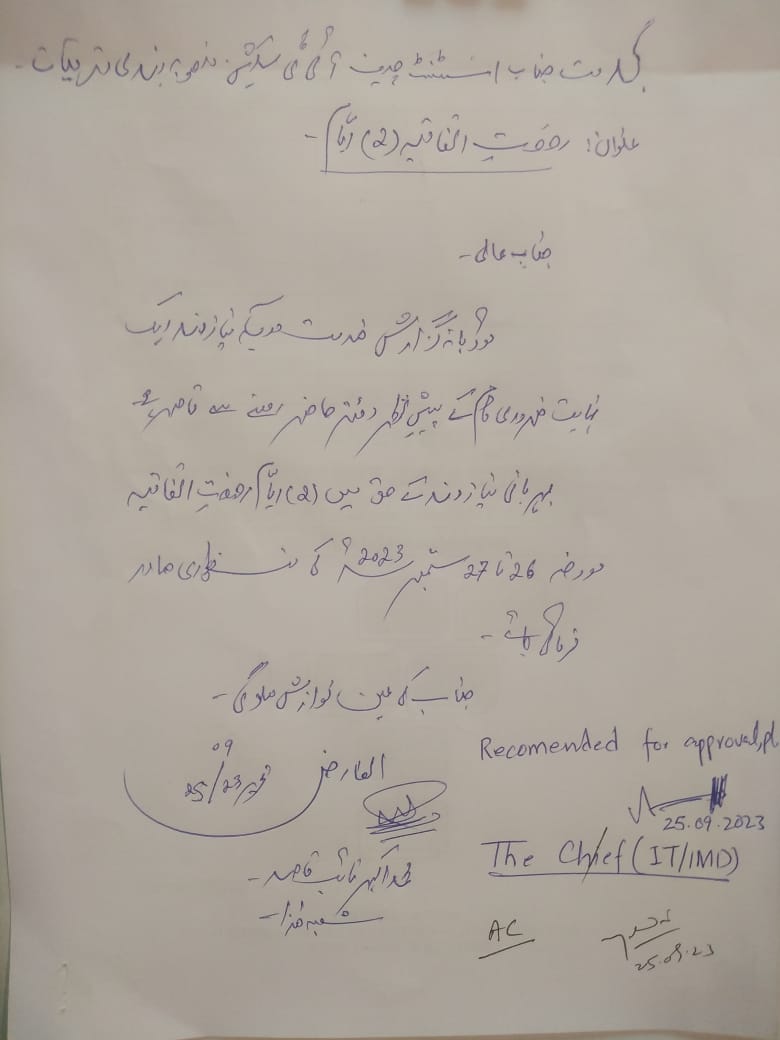 بخدمت جناب اسسٹنٹ چیف آئی ٹی سیکشن منصوبہ بندی و ترقیات۔
عنوان: رخصتِ اتفاقیہ (2) ایّام۔
جناب عالی۔
مودبانہ گزارش خدمت ہیکہ نیازمند ایک
نہایت ضروری کام کے پیشِ نظر دفتر حاضر ہونے سے قاصر ہے
مہربانی نیازمند کے حق میں (2) ایّام رخصتِ اتفاقیہ
مورخہ 26 تا 27 ستمبر 2023ء کی منظوری صادر
فرمائی جائے۔
جناب کی عین نوازش ہوگی۔
العارض
25/09/23
محمد اکبر نائب قاصد۔
شعبہ ھٰذا۔
Recomended for approval, pl
25.09.2023
The Chief (IT/IMD)
AC
25.09.23